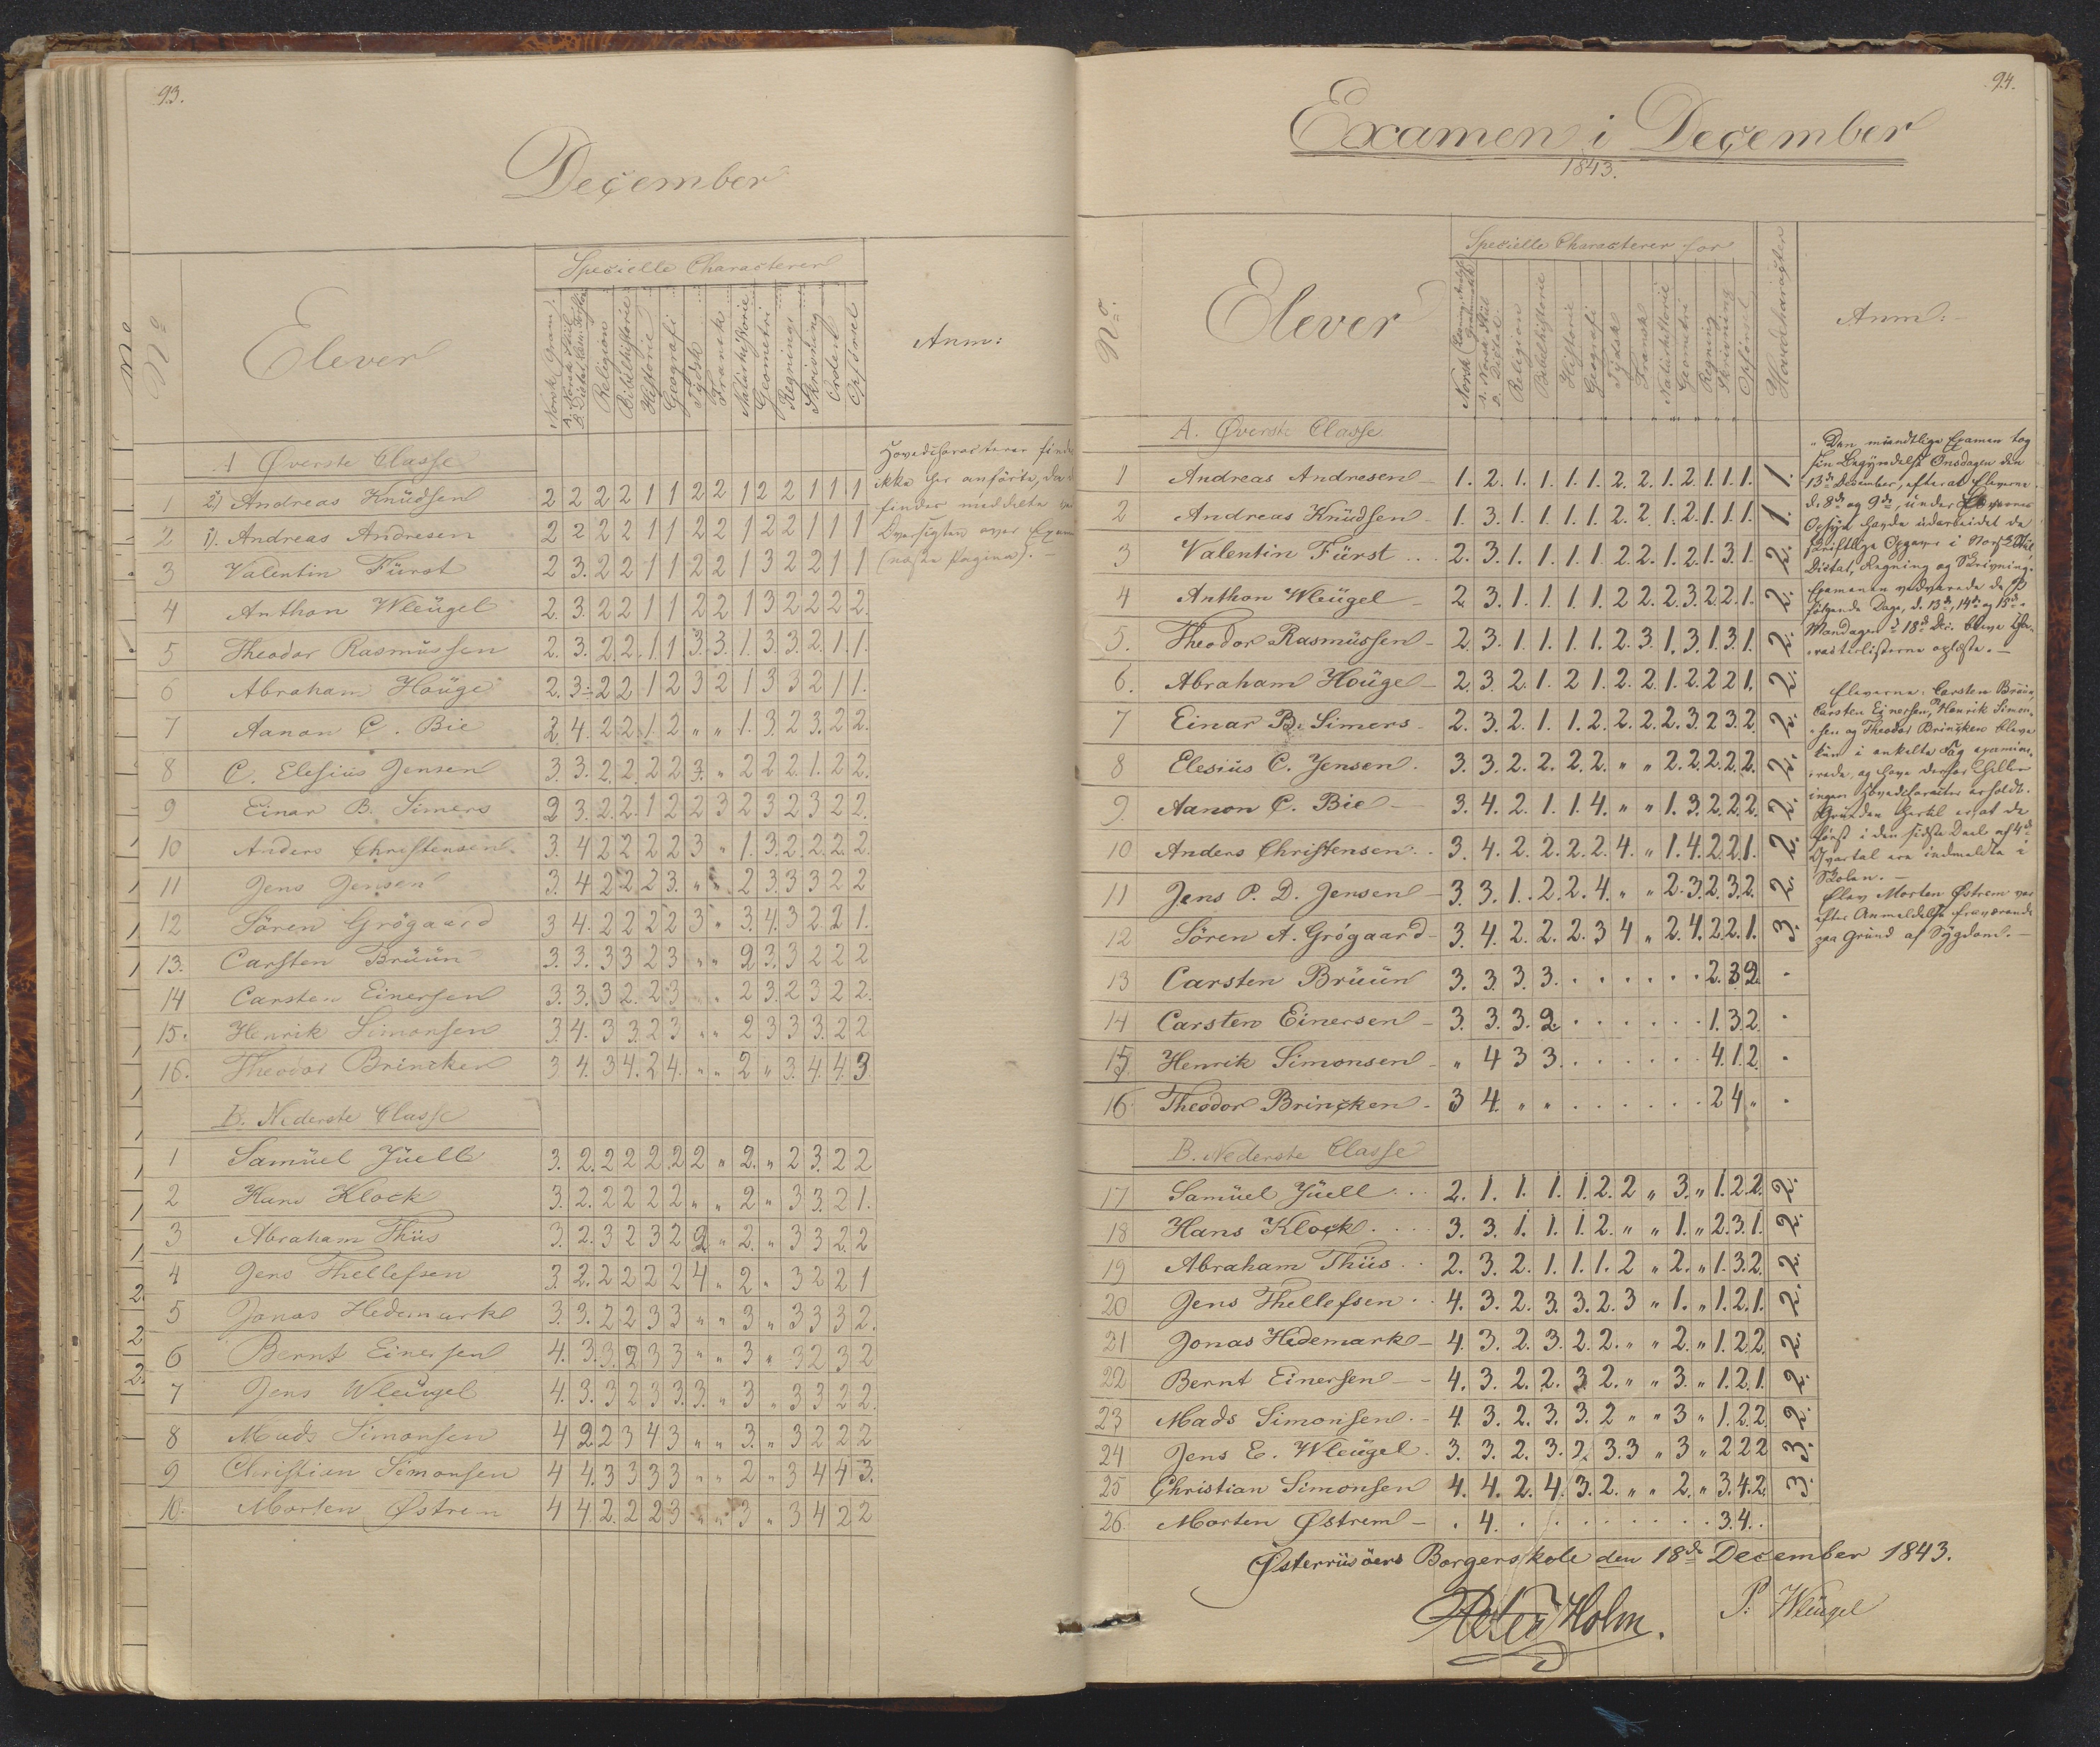 93.
December
No
Elever
Specielle Characterer
Anm:
Norsk (Gram)
Religion
Bibelhistorie
Historie
Geografi
Tydsk
Fransk
Natürhistorie
Geometri
Regning
Skrivning
Orden
Opførsel
A Øverste Classe
1 2) Andreas Knüdsen 2 2 2 2 1 1 2 2 1 2 2 1 1 1
2 1). Andreas Andresen 2 2 2 2 1 1 2 2 1 2 2 1 1 1
3 Valentin Fürst 2 3. 2 2 1 1 2 2 1 3 2 2 1 1
4 Anthon Wleügel 2. 3. 2 2 1 1 2 2 1 3 2 2 2 2.
5 Theodor Rasmüssen 2. 3. 2 2. 1. 1 3. 3. 1. 3 3. 2. 1. 1.
6 Abraham Houge 2. 3. 2 2. 1 2 3 2 1 3 3 2 1 1.
7 Aanon C. Bie 2 4. 2 2 1. 2 " " 1. 3. 2 3. 2 2.
8 C. Elesius Jensen 3. 3. 2. 2. 2 2 3. " 2 2 2. 1. 2 2.
9 Einar B. Simers 2 3. 2. 2. 1 2 2 3 2 3 2 3 2 2.
10 Anders Christensen 3. 4 2 2 2 2 3 " 1. 3. 2. 2. 2. 2.
11 Jens Jensen 3. 4 2 2 2 3. " " 2 3. 3 3 2 2
12 Sören Grögaard 3 4. 2 2 2 2 3 " 3. 4. 3 2. 2. 1.
13. Carsten Brüün 3. 3. 3 3 2 3 " " 2 3. 3 2 2 2
14 Carsten Einersen 3. 3. 3 2. 2 3 " " 2 3. 2 3 2 2.
15. Henrik Simonsen 3. 4. 3 3. 2 3 " " 2 3 3 3. 2 2
16. Theodor Brincken 3 4. 3 4. 2 4. " " 2 " 3. 4. 4. 3
B. Nederste Classe
1 Samüel Jüell 3. 2. 2 2 2. 2 2 " 2. " 2 3. 2 2
2 Hans Klock 3. 2. 2 2 2 2 " " 2 " 3 3. 2 1.
3 Abraham Thiis 3. 2. 3 2 3 2 2 " 2. " 3 3 2. 2
4 Jens Thellefsen 3. 2. 2 2 2 2 4 " 2 " 3 2 2 1
5 Jonas Hedemark 3. 3. 2 2 3 3 " " 3 " 3 3 3 2.
6 Bernt Einersen 4. 3. 3. 2 3 3 " " 3 " 3 2 3 2
7 Jens Wleügel 4. 3. 3 2 3 3. 3. " 3 " 3 3 2 2.
8 Mads Simonsen 4 2 2 3 4 3 " " 3. " 3 2 2 2
9 Christian Simonsen 4 4. 3 3 3 3 " " 2 " 3 4 4 3.
10. Morten Østrem 4 4. 2. 2 2 3 " " 3 " 3 4 2 2
Hovedcharacterer findes
ikke her anførte, da
findes meddelte
Oversigten over Exam
(næste Pagina). —
94.
Examen i December
1843.
No.
Elever
Specielle Characterer for
Hovedcharacter
Anm:
Religion
Bibelhistorie
Historie
Geografi
Tydsk
Fransk
Natürhistorie
Geometri
Regning
Skrivning
Opførsel
A. Øverste Classe
1 Andreas Andresen 1. 2. 1. 1. 1. 1. 2. 2. 1. 2. 1. 1. 1. 1.
2 Andreas Knüdsen 1. 3. 1. 1. 1. 1. 2. 2. 1. 2. 1. 1. 1. 1.
3 Valentin Fürst 2. 3. 1. 1. 1. 1. 2. 2. 1. 2. 1. 3. 1. 2.
4 Anthon Wleügel 2. 3. 1. 1. 1. 1. 2 2. 2. 3. 2. 2. 1. 2.
5. Theodor Rasmüssen 2. 3. 1. 1. 1. 1. 2. 3. 1. 3. 1. 3. 1. 2.
6. Abraham Houge 2. 3. 2. 1. 2 1. 2. 2. 1. 2. 2 2 1. 2.
7 Einar B. Simers 2. 3. 2. 1. 1. 2. 2. 2. 2. 3. 2 3. 2. 2.
8 Elesiüs C. Jensen. 3. 3. 2. 2. 2. 2. " " 2. 2. 2. 2. 2. 2.
9. Aanon C. Bie 3. 4. 2. 1. 1. 4. " " 1. 3. 2. 2. 2. 2.
10 Anders Christensen 3. 4. 2. 2. 2. 2. 4. " 1. 4. 2. 2. 1. 2.
11 Jens P. D. Jensen 3. 3. 1. 2. 2. 4. " " 2. 3. 2. 3. 2. 2.
12 Sören A. Grögaard 3. 4. 2. 2. 2. 3 4 " 2. 4. 2. 2. 1. 3.
13 Carsten Brüün 3. 3. 3. 3. . . . . . . 2. 3 2. .
14 Carsten Einersen 3. 3. 3. 2. . . . . . . 1. 3. 2. .
15 Henrik Simonsen " 4 3 3. . . . . . . 4. 1. 2. .
16 Theodor Brincken 3 4. " " . . . . . . 2 4 " .
B. Nederste Classe
17 Samüel Jüell 2. 1. 1. 1. 1. 2. 2 " 3. " 1. 2. 2. 2.
18 Hans Klock 3. 3. 1. 1. 1. 2. " " 1. " 2. 3. 1. 2.
19 Abraham Thiis 2. 3. 2. 1. 1. 1. 2 " 2. " 1. 3. 2. 2.
20 Jens Thellefsen 4. 3. 2. 3. 3. 2. 3 " 1. " 1. 2. 1. 2.
21 Jonas Hedemark 4. 3. 2. 3. 2. 2. " " 2. " 1. 2. 2. 2.
22 Bernt Einersen 4. 3. 2. 2. 3. 2. " " 3. " 1. 2. 1. 2.
23 Mads Simonsen 4. 3. 2. 3. 3. 2 " " 3 " 1. 2. 2. 2.
24 Jens E. Wleügel. 3. 3. 2. 3. 2. 3. 3 " 3 " 2 2 2 3.
25 Christian Simonsen 4. 4. 2. 4. 3. 2. " " 2. " 3. 4. 2. 3.
26 Morten Østrem . 4. . . . . . . . . 3. 4. .
Den mündtlige Examen tog
sin Begyndelse Onsdagen den
13de December, efterat Eleverne
d. 8de og 9de, ünder
Opsyn havde üdarbeidet de
skriftlige Opgaver i Norsk Stiil
Dictat, Regning og Skrivning.
Examenen vedvarede de
følgende Dage, d. 13de, 14de og 15de.
Mandagen d. 18de Dec. bleve Cha-
racterlisterne oplæste. —
Eleverne: Carsten Brüün,
Carsten Einersen, Henrik Simon-
sen og Theodor Brincken bleve
kün i enkelte Fag examine-
rede, og have derfor heller
ingen Hovedcharacter erholdt.
Gründen hertil er at de
først i den sidste Deel af 4de
Qvartal ere indmeldte i
Skolen. —
Elev Morten Østrem var
efter Anmeldelse fraværende
paa Gründ af Sygdom. —
Østerriisöers Borgerskole den 18de December 1843.
Peter Holm.
P: Wleügel